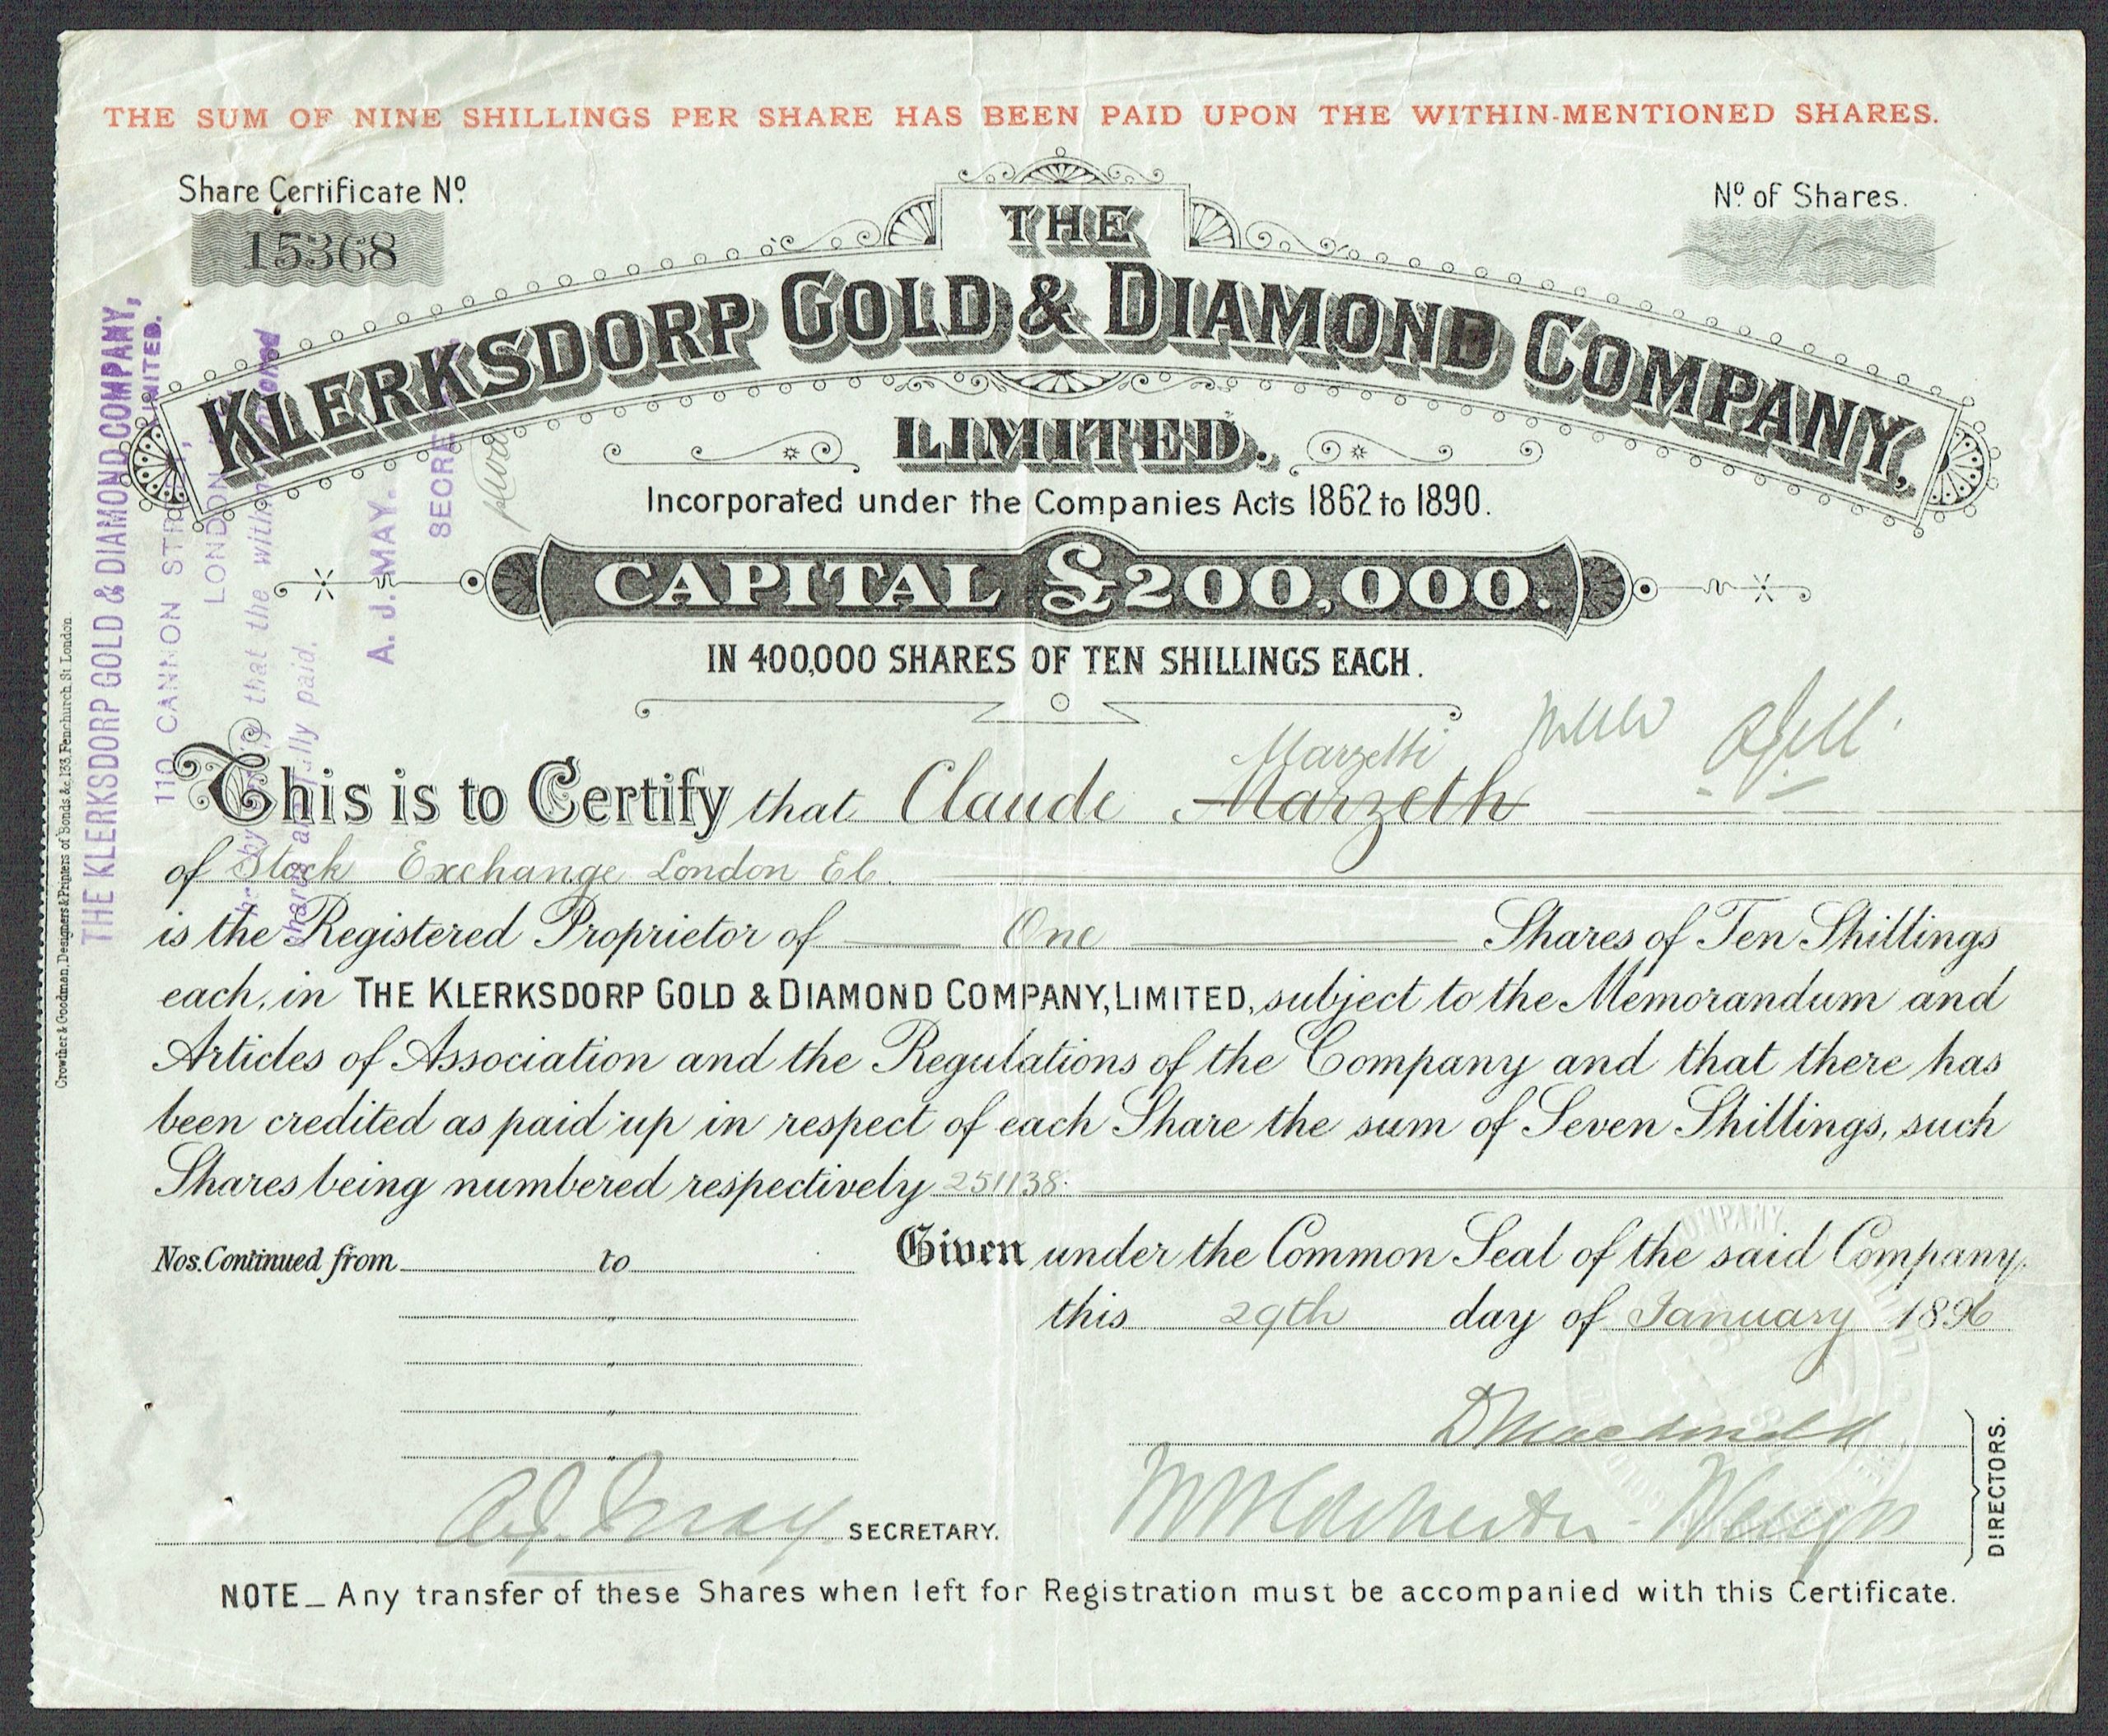 THE SUM OF NINE SHILLINGS PER SHARE HAS BEEN PAID UPON THE WITHIN-MENTIONED SHARES.
Share Certificate No.
15368
No. of Shares.
1
THE
KLERKSDORP GOLD & DIAMOND COMPANY,
LIMITED.
Incorporated under the Companies Acts 1862 to 1890.
CAPITAL £200,000.
IN 400,000 SHARES OF TEN SHILLINGS EACH.
Marzetti
This is to Certify that Claude Marzeth
of Stock Exchange London E.C.
is the Registered Proprietor of One Shares of Ten Shillings
each, in THE KLERKSDORP GOLD & DIAMOND COMPANY, LIMITED, subject to the Memorandum and
Articles of Association and the Regulations of the Company and that there has
been credited as paid up in respect of each Share the sum of Seven Shillings, such
Shares being numbered respectively 251138.
Nos. Continued from to
Given under the Common Seal of the said Company.
this 29th day of January 1896
"
"
"
"
D Macdonald
A. J. May SECRETARY.
DIRECTORS.
NOTE_ Any transfer of these Shares when left for Registration must be accompanied with this Certificate.
Crowther & Goodman, Designers & Printers of Bonds, &c. 133, Fenchurch St London.
THE KLERKSDORP GOLD & DIAMOND COMPANY,
LIMITED.
110, CANNON
LONDON
that the within
shares fully paid.
A. J. MAY.